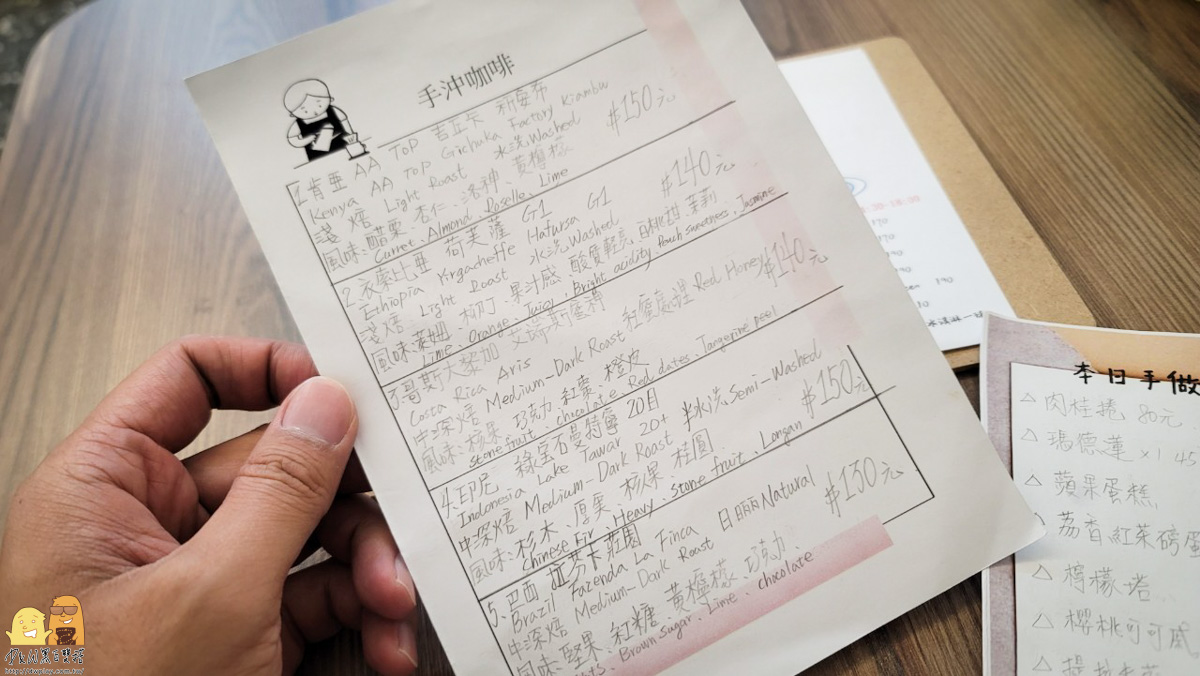 手沖咖啡
1.肯亞 AA TOP 吉丘卡 新安布
Kenya AA TOP Gichuka Factory Kiambu
淺焙 Light Roast 水洗 Washed $150元
風味:醋栗、杏仁、洛神、黃檸檬
Curret、Almond、Roselle、Lime
2.衣索比亞 荷芙薩 G1
Ethiopia Yirgacheffe Hafursa G1 $140元
淺焙 Light Roast 水洗 Washed
風味:萊姆、柳丁、果汁感、酸質輕亮、白桃甜、茉莉
Lime、Orange、Juicy、Bright acidity、Peach sweetness、Jasmine
3.哥斯大黎加 艾瑞斯蜜
Costa Rica Aris $140元
中深焙 Medium-Dark Roast 紅蜜處理 Red Honey
風味:核果、巧克力、紅棗、橙皮
stone fruit、chocolate、Red dates、Tangerine peel
4.印尼 綠寶石曼特寧 20目
Indonesia Lake Tawar 20+
中深焙 Medium-Dark Roast 半水洗 Semi-Washed $150元
風味:杉木、厚實、核果、桂圓
Chinese Fir、Heavy、Stone fruit、Longan
5.巴西 拉芬卡莊園
Brazil Fazenda La Finca $130元
中深焙 Medium-Dark Roast 日曬 Natural
風味:堅果、紅糖、黃檸檬、巧克力
Brown sugar、Lime、chocolate
本日手做
△ 肉桂捲 80元
△ 瑪德蓮 ×1 45
△ 蘋果蛋糕
△ 荔香紅茶磅蛋
△ 檸檬塔
△ 櫻桃可可戚
△
http://